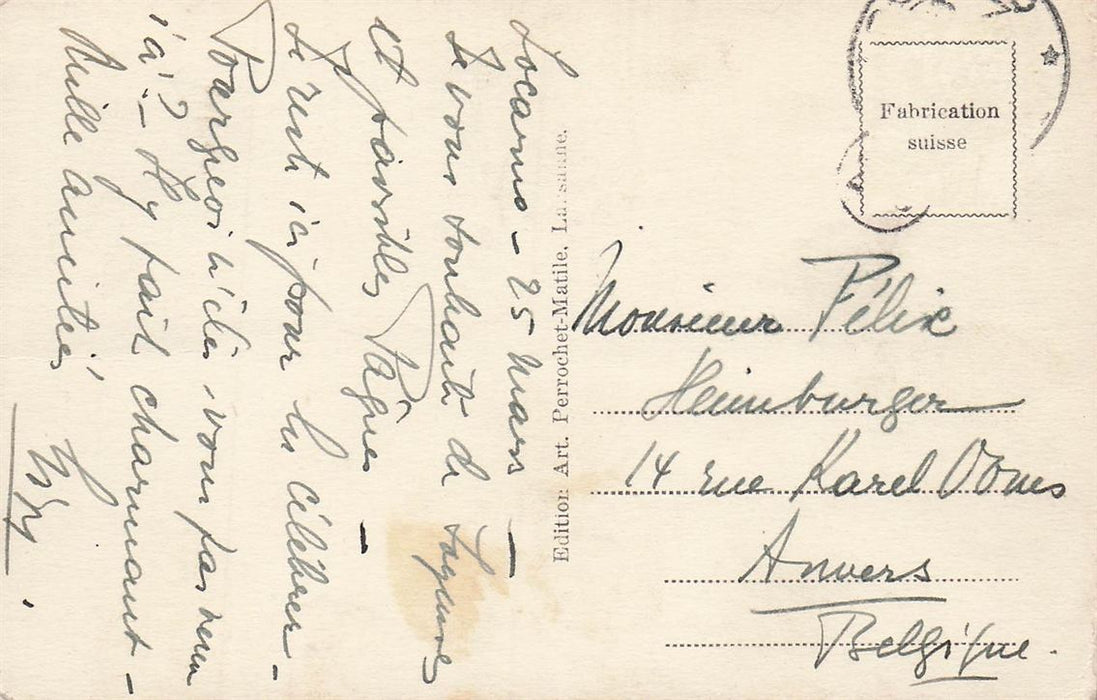 Locarno - 25 Mars -
Je vous souhaite de joyeuses
et paisibles Pâques -
Je reste ici pour les célébrer -
Pourquoi n'êtes-vous pas venu
ici? - Il y fait charmant -
Mille amitiés
Edition Art. Perrochet-Matile, Lausanne.
Fabrication
suisse
Monsieur Félix
Heimburger
14 rue Karel Ooms
Anvers
Belgique.